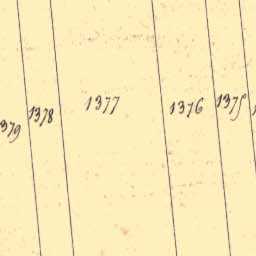 1378
1377
1376
1375